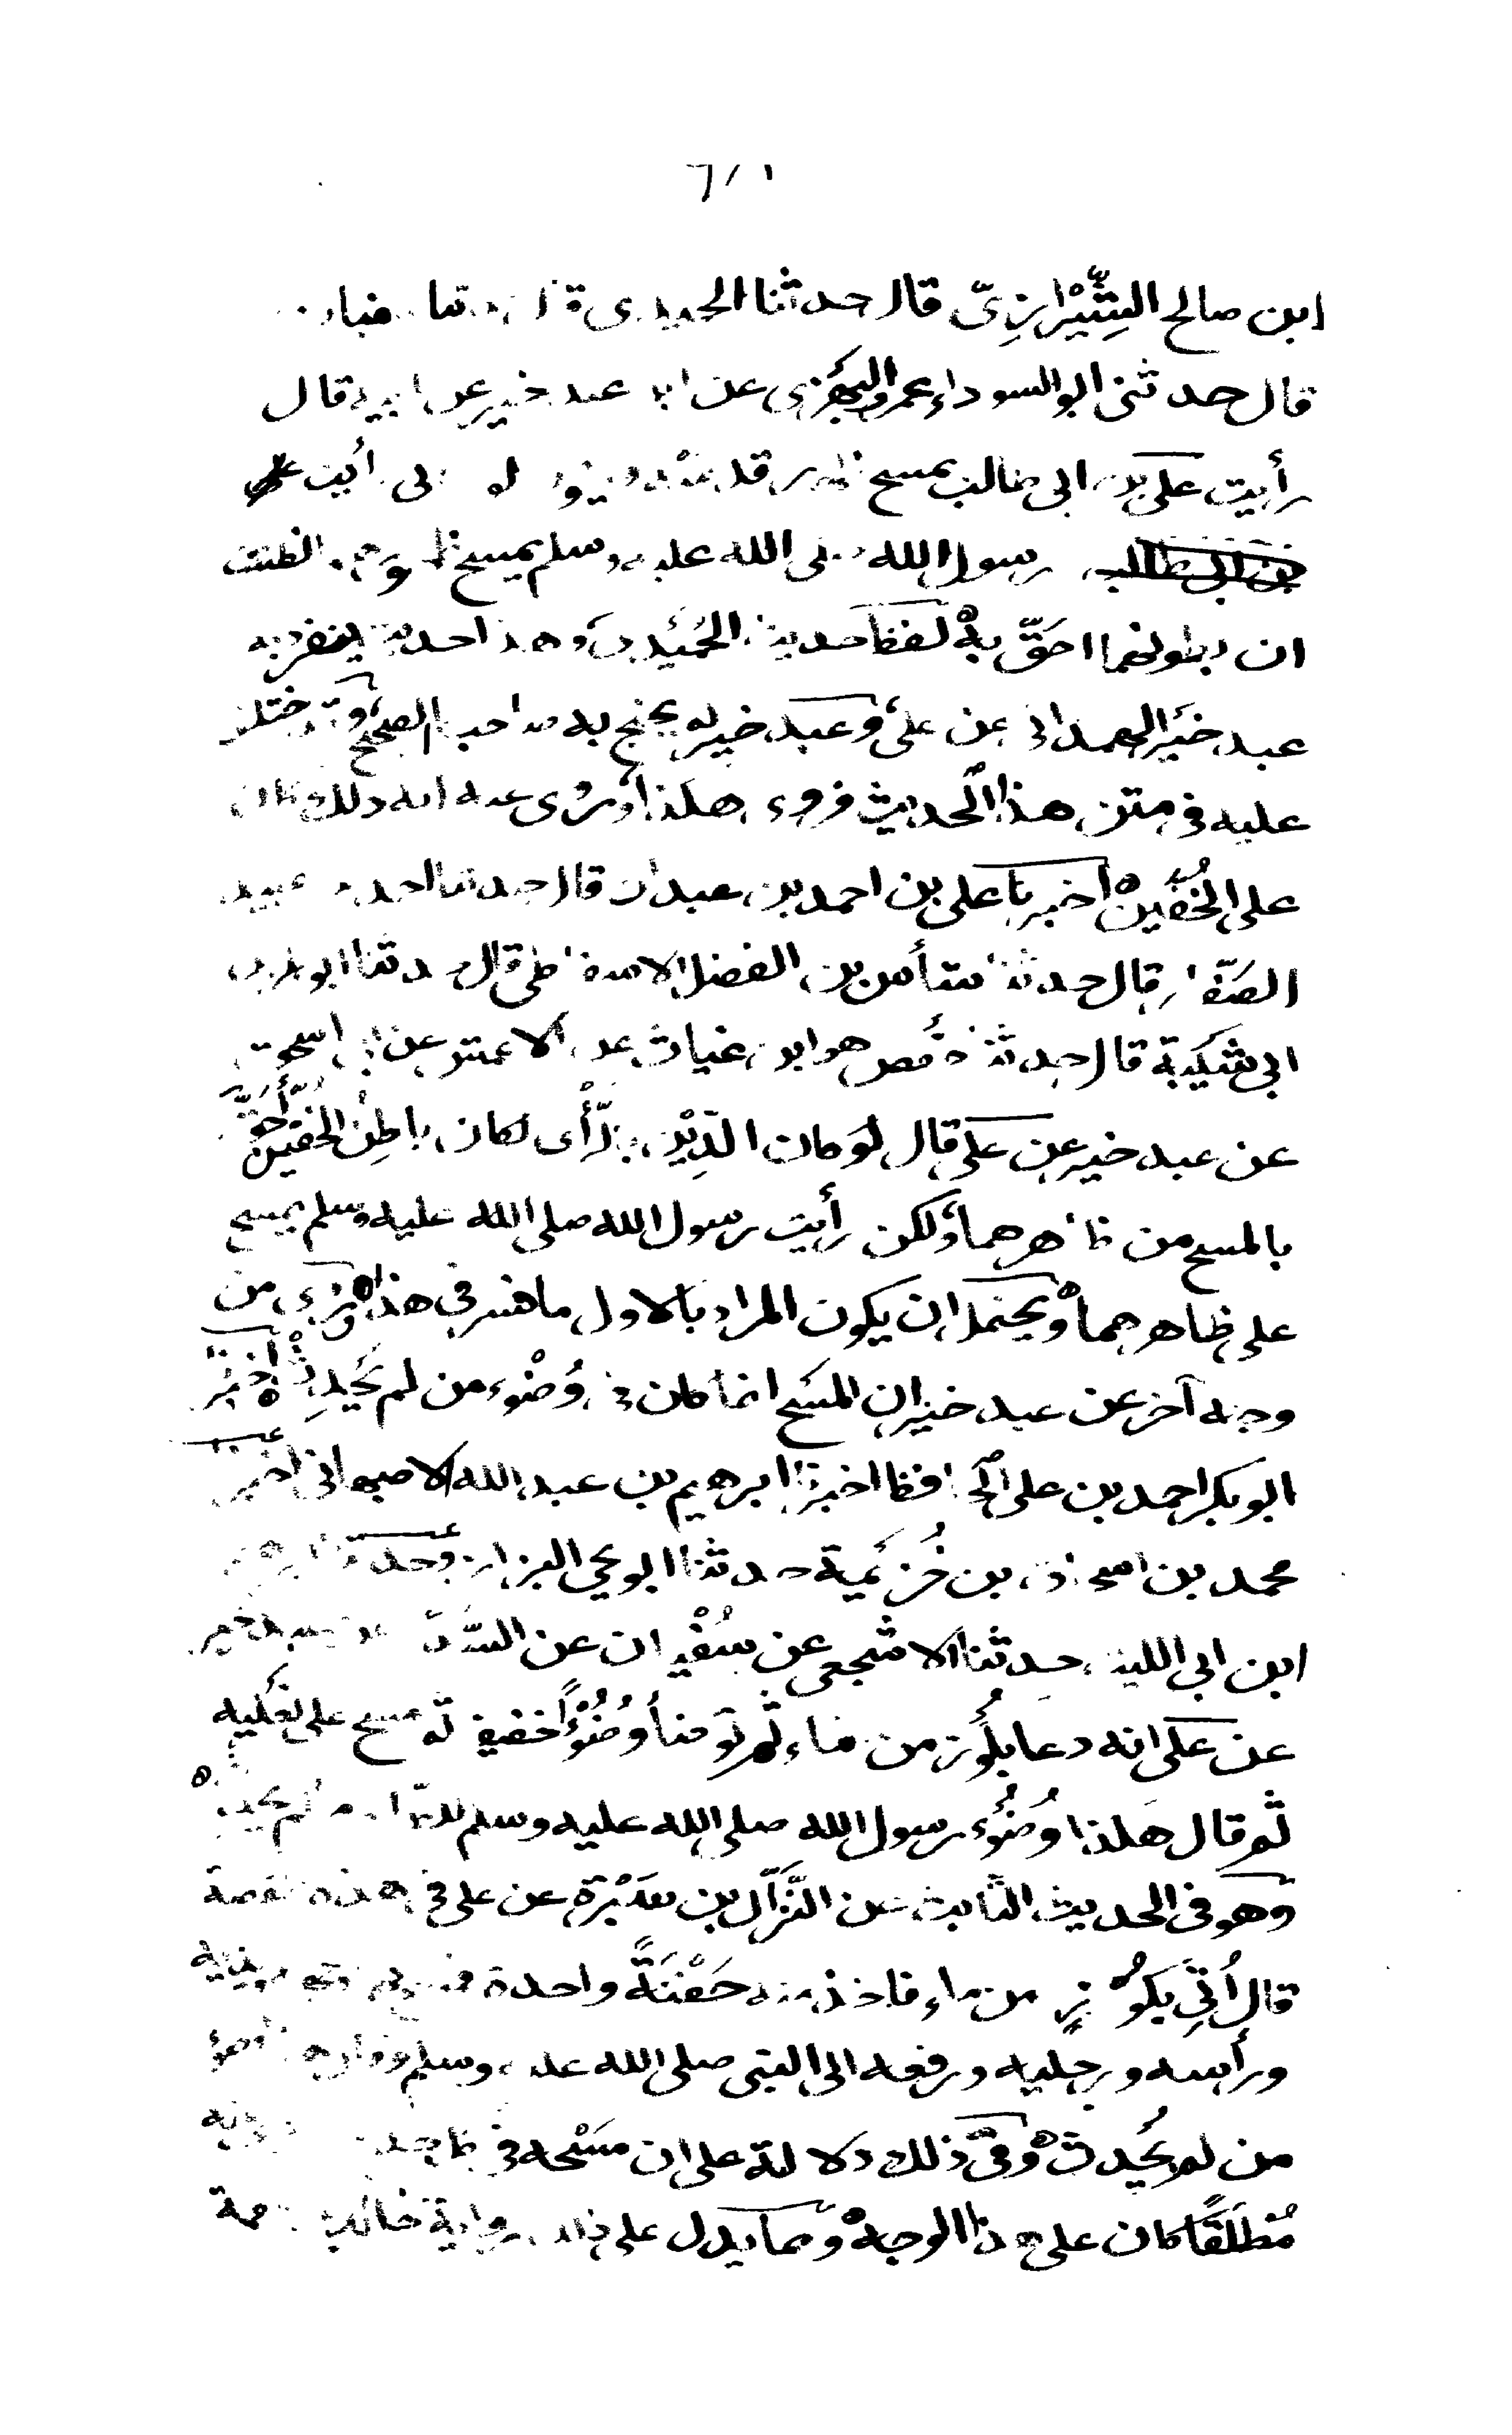 ابن صالح الشِّيْرازِيّ قال حدثنا الحميدى
قال حدثنى ابو السوداء عمرو النهدى عن ابن عبد خير عن ابيه قال
رأيت على بن ابى طالب يمسح ظهر قدميه ويقول لولا انى رأيت
رسول الله صلى الله عليه وسلم يمسح ظهورهما لظننت
ان بطونهما احَقّ به لفظ حديث الحُمَيْدى وهذا حديث ينفرد به
عبد خَيْر الهمدانى عن علىّ وعبد خير لم يحتج به صاحبا الصحيح وقد اختلف
عليه فى متن هذا الحديث فروى هكذا ورُوى عنه ان ذلك كان
على الخُفَّين اخبرنا على بن احمد بن عبدان قال حدثنا احمد بن عبيد
الصَفّار قال حدثنا عباس بن الفضل الاسفاطى قال حدثنا ابو بكر بن
ابى شَيْبَة قال حدثنا حفص هو ابن غياث عن الاعمش عن ابى اسحق
عن عبد خير عن على قال لو كان الدِّيْن بالرَّأى لكان باطِن الخفين أحَقَّ
بالمسح من ظاهرهما ولكن رأيت رسول الله صلى الله عليه وسلم يمسح
على ظاهرهما ويحتمل ان يكون المراد بالاول ما فسر فى هذا ورُوى من
وجه آخر عن عبد خير ان المَسْح انما كان فى وُضُوء من لم يُحْدِث اخبرنا
ابو بكر احمد بن على الحافظ اخبرنا ابرهيم بن عبد الله الاصبهانى اخبرنا
محمد بن اسحاق بن خُزَيْمَة حدثنا ابو يحيى البزاز وحدثنا ابرهيم
ابن ابى الليث حدثنا الاشجعى عن سُفْيان عن السُّدّى عن عبد خير
عن على انه دعا بكُوز من ماء ثم توضأ وُضُوْءًا خفيفا ثم مسح على نَعْلَيه
ثم قال هكذا وُضُوْء رسول الله صلى الله عليه وسلم للطّاهر ما لم يُحْدِث
وهو فى الحديث الثابت عن النَّزّال بن سَبْرَة عن على فى هذه القصة
قال أُتِىَ بكُوْزٍ من ماء فاخذ منه حَفْنَةً واحدة فمسح بها وجهه ويديه
ورأسه ورجليه ورفعه الى النبى صلى الله عليه وسلم وقال هذا وضوء
من لم يُحْدِث وفى ذلك دلالة على ان مَسْحه فى
مُطْلَقًا كان على هذا الوجه ومما يدل على ذلك رواية خالد بن علقمة